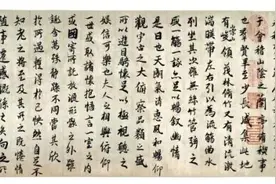 于會稽山陰之蘭亭脩稧事
也羣賢畢至少長咸集此地
有崇領茂林脩竹又有清流激
湍暎帶左右引以為流觴曲水
列坐其次雖無絲竹管弦之
盛一觴一詠亦足以暢敘幽情
是日也天朗氣清惠風和暢仰
觀宇宙之大俯察品類之盛
所以遊目騁懷足以極視聽之
娛信可樂也夫人之相與俯仰
一世或取諸懷抱悟言一室之內
或因寄所託放浪形骸之外雖
趣舍萬殊靜躁不同當其欣
於所遇蹔得於己怏然自足不
知老之將至及其所之既惓情
隨事遷感慨係之矣向之所